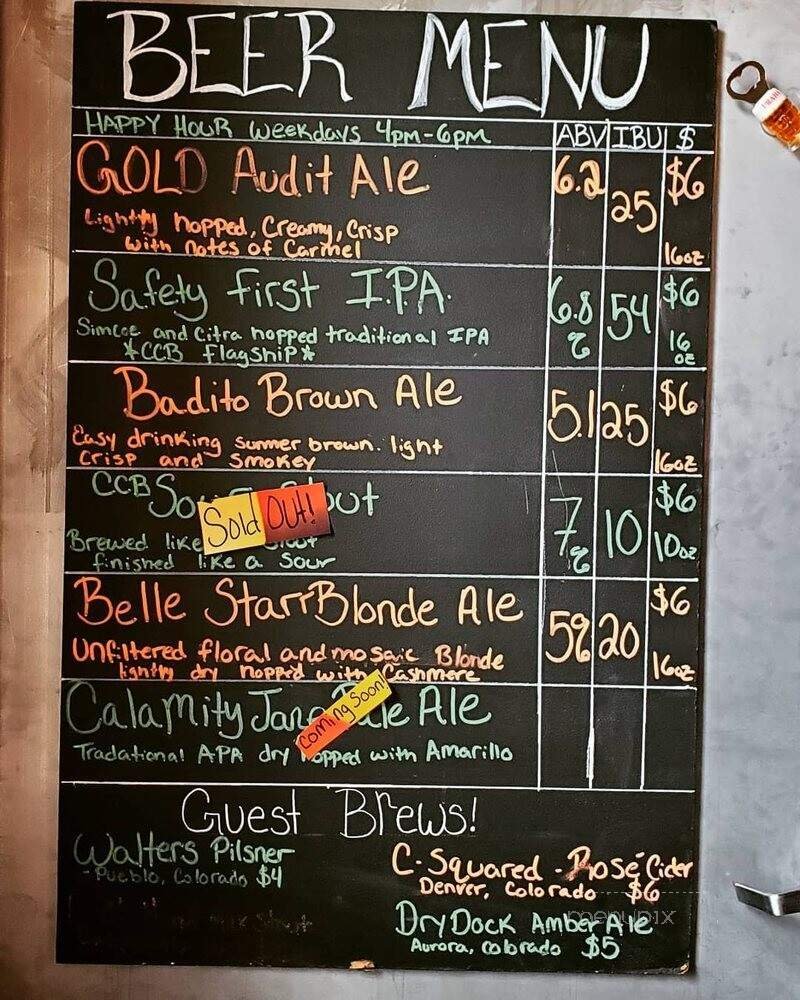 BEER MENU
HAPPY HOUR Weekdays 4pm-6pm ABV IBU $
GOLD Audit Ale 6.2 25 $6
Lightly hopped, Creamy, Crisp
with notes of Carmel 16oz
Safety First I.P.A. 6.8 % 54 $6
Simcoe and Citra hopped traditional IPA 16
*CCB flagship* oz
Badito Brown Ale 5.1 25 $6
Easy drinking summer brown. light
Crisp and smokey 16oz
CCB 7% 10 $6
Sold OUT!
Brewed like 10oz
finished like a Sour
Belle Starr Blonde Ale 5% 20 $6
Unfiltered floral and mosaic Blonde
lightly dry hopped with Cashmere 16oz
Calamity Jane Pale Ale
Coming Soon!
Tradational APA dry hopped with Amarillo
Guest Brews!
Walters Pilsner
- Pueblo, Colorado $4
C-Squared - Rosé Cider
Denver, Colorado $6
Dry Dock Amber Ale
Aurora, Colorado $5
menupix